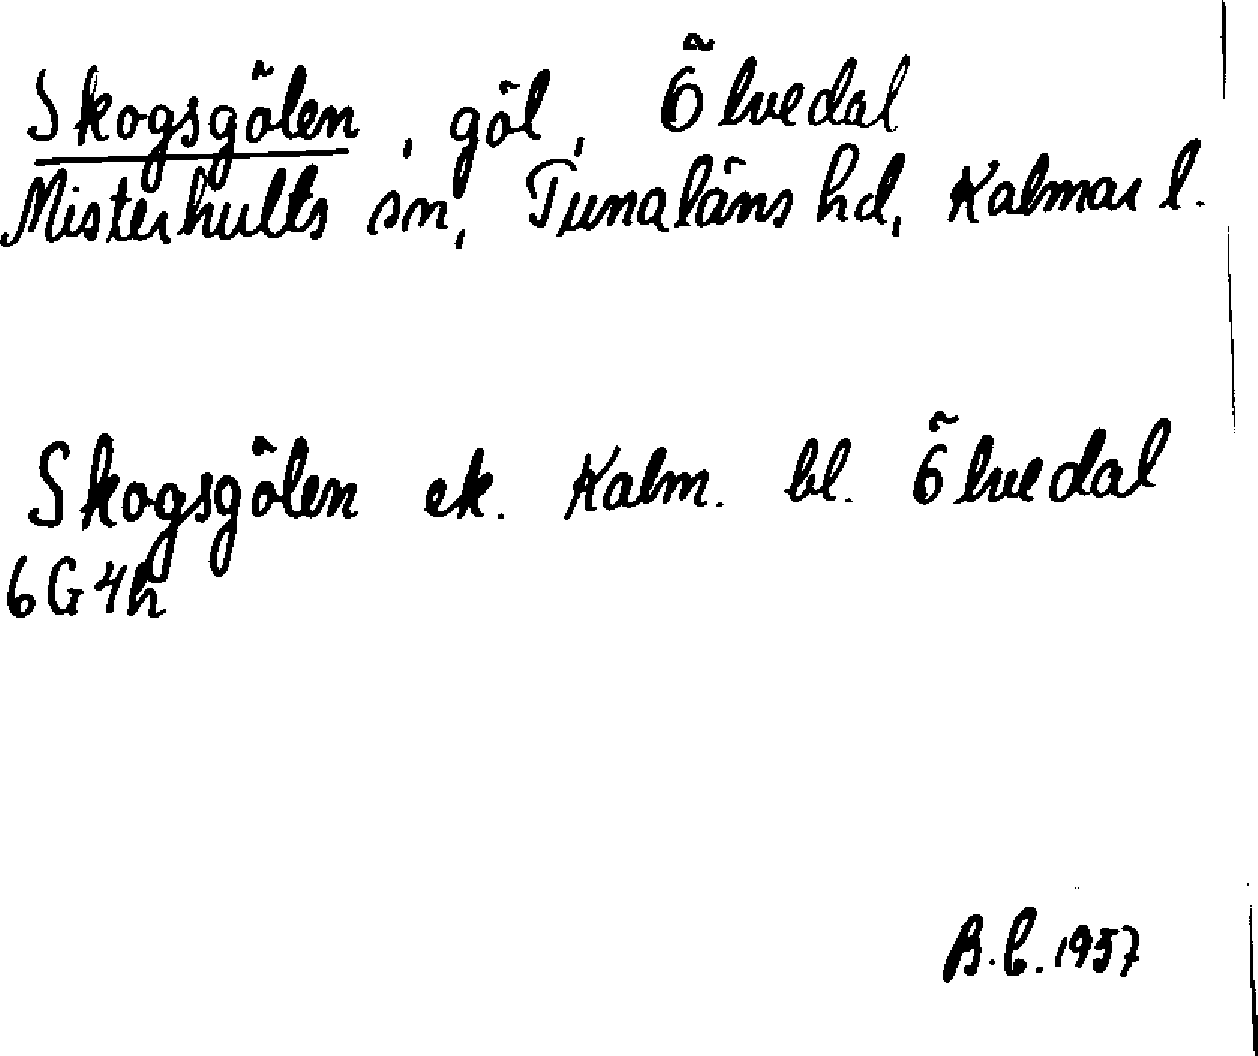 Skogsgölen, göl, Ölvedal
Misterhults sn, Tunaläns hd, Kalmar l.
Skogsgölen ek. Kalm. bl. Ölvedal
6G4h
B.C. 1957